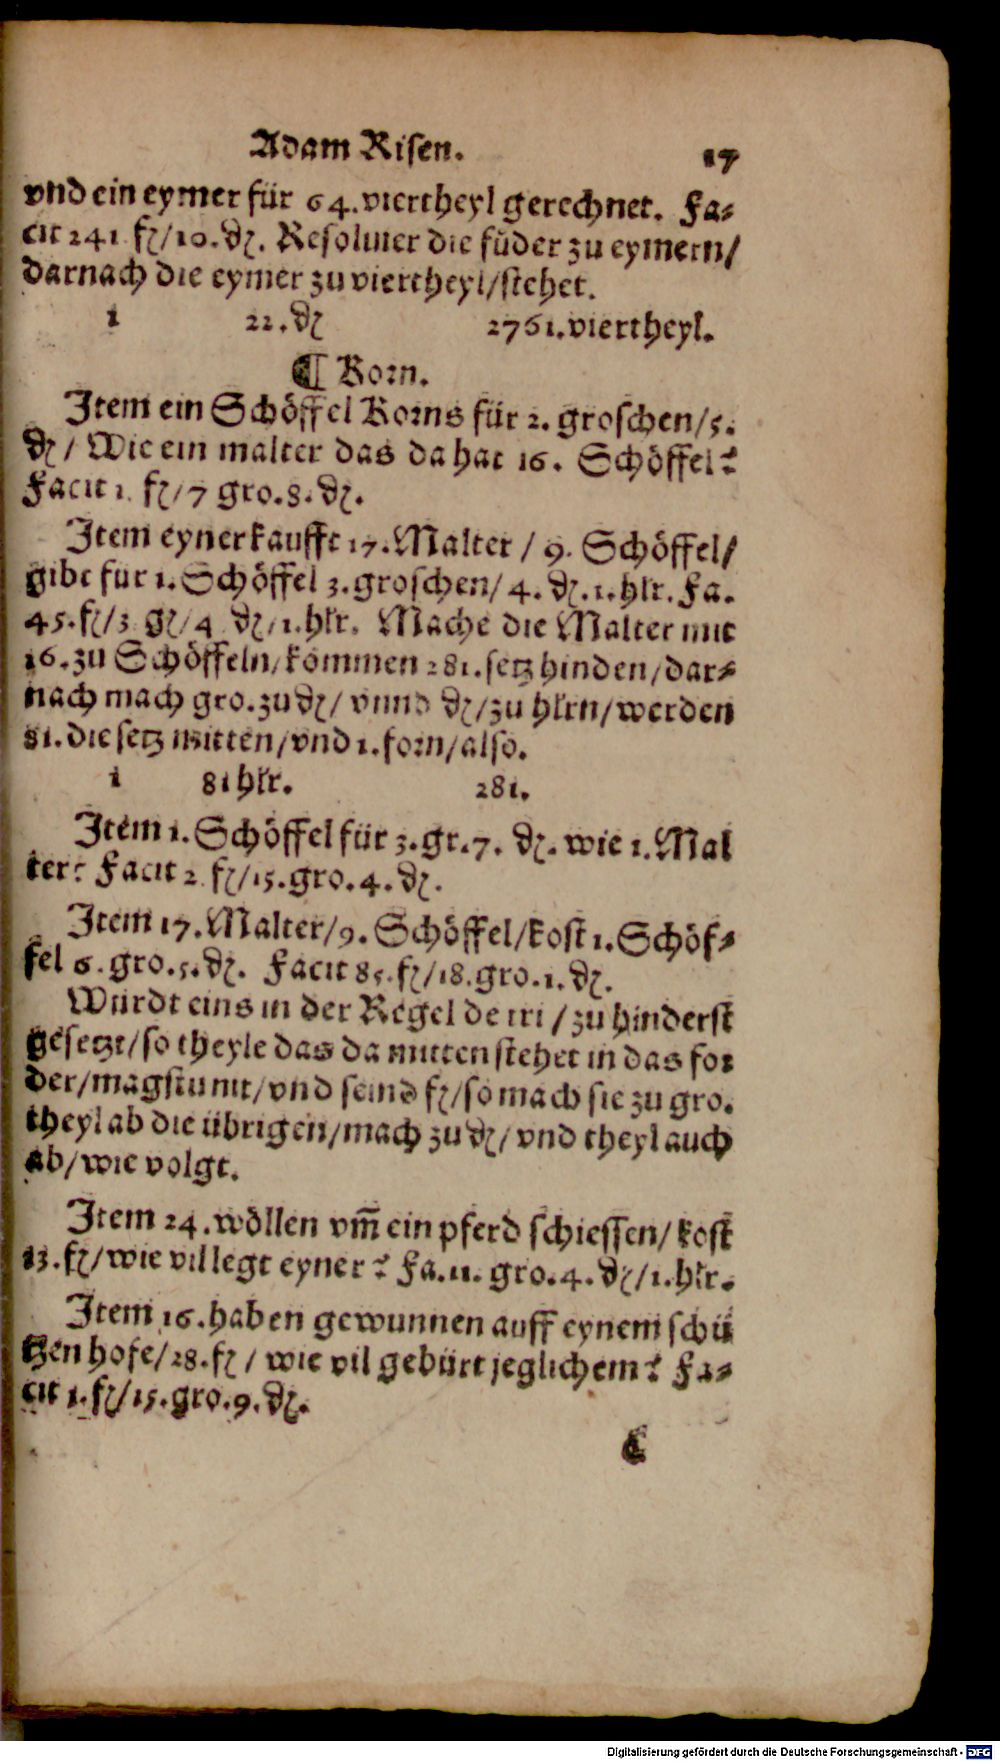 Adam Risen. 17
vnd ein eymer für 64. viertheyl gerechnet. Fa⸗
cit 241 fl/10. ₰. Resoluier die füder zu eymern/
darnach die eymer zu viertheyl/stehet.
1 22. ₰ 2761. viertheyl.
¶ Korn.
Item ein Schöffel Korns für 2. groschen/5.
₰/ Wie ein malter das da hat 16. Schöffel?
Facit 1. fl/7 gro. 8. ₰.
Item eyner kaufft 17. Malter/ 9. Schöffel/
gibt für 1. Schöffel 3. groschen/ 4. ₰. 1. hlr. Fa.
45. fl/3 gl/4 ₰/1. hlr. Mache die Malter mit
16. zu Schöffeln/kommen 281. setz hinden/dar⸗
nach mach gro. zu ₰/ vnnd ₰/zu hlrn/werden
81. die setz mitten/vnd 1. forn/also.
1 81 hlr. 281.
Item 1. Schöffel für 3. gr. 7. ₰. wie 1. Mal
ter? Facit 2 fl/15. gro. 4. ₰.
Item 17. Malter/9. Schöffel/kost 1. Schöf⸗
fel 6. gro. 5. ₰. Facit 85. fl/18. gro. 1. ₰.
Würdt eins in der Regel de tri/zu hinderst
gesetzt/so theyle das da mitten stehet in das for
der/magstu nit/vnd seind fl/so mach sie zu gro.
theyl ab die übrigen/mach zu ₰/vnd theyl auch
ab/wie volgt.
Item 24. wöllen vm̄ ein pferd schiessen/kost
13. fl/wie vil legt eyner? Fa. 11. gro. 4. ₰/1. hlr.
Item 16. haben gewunnen auff eynem schü
tzen hofe/28. fl/ wie vil gebürt jeglichem? Fa⸗
cit 1. fl/15. gro. 9. ₰.
C
Digitalisierung gefördert durch die Deutsche Forschungsgemeinschaft - DFG